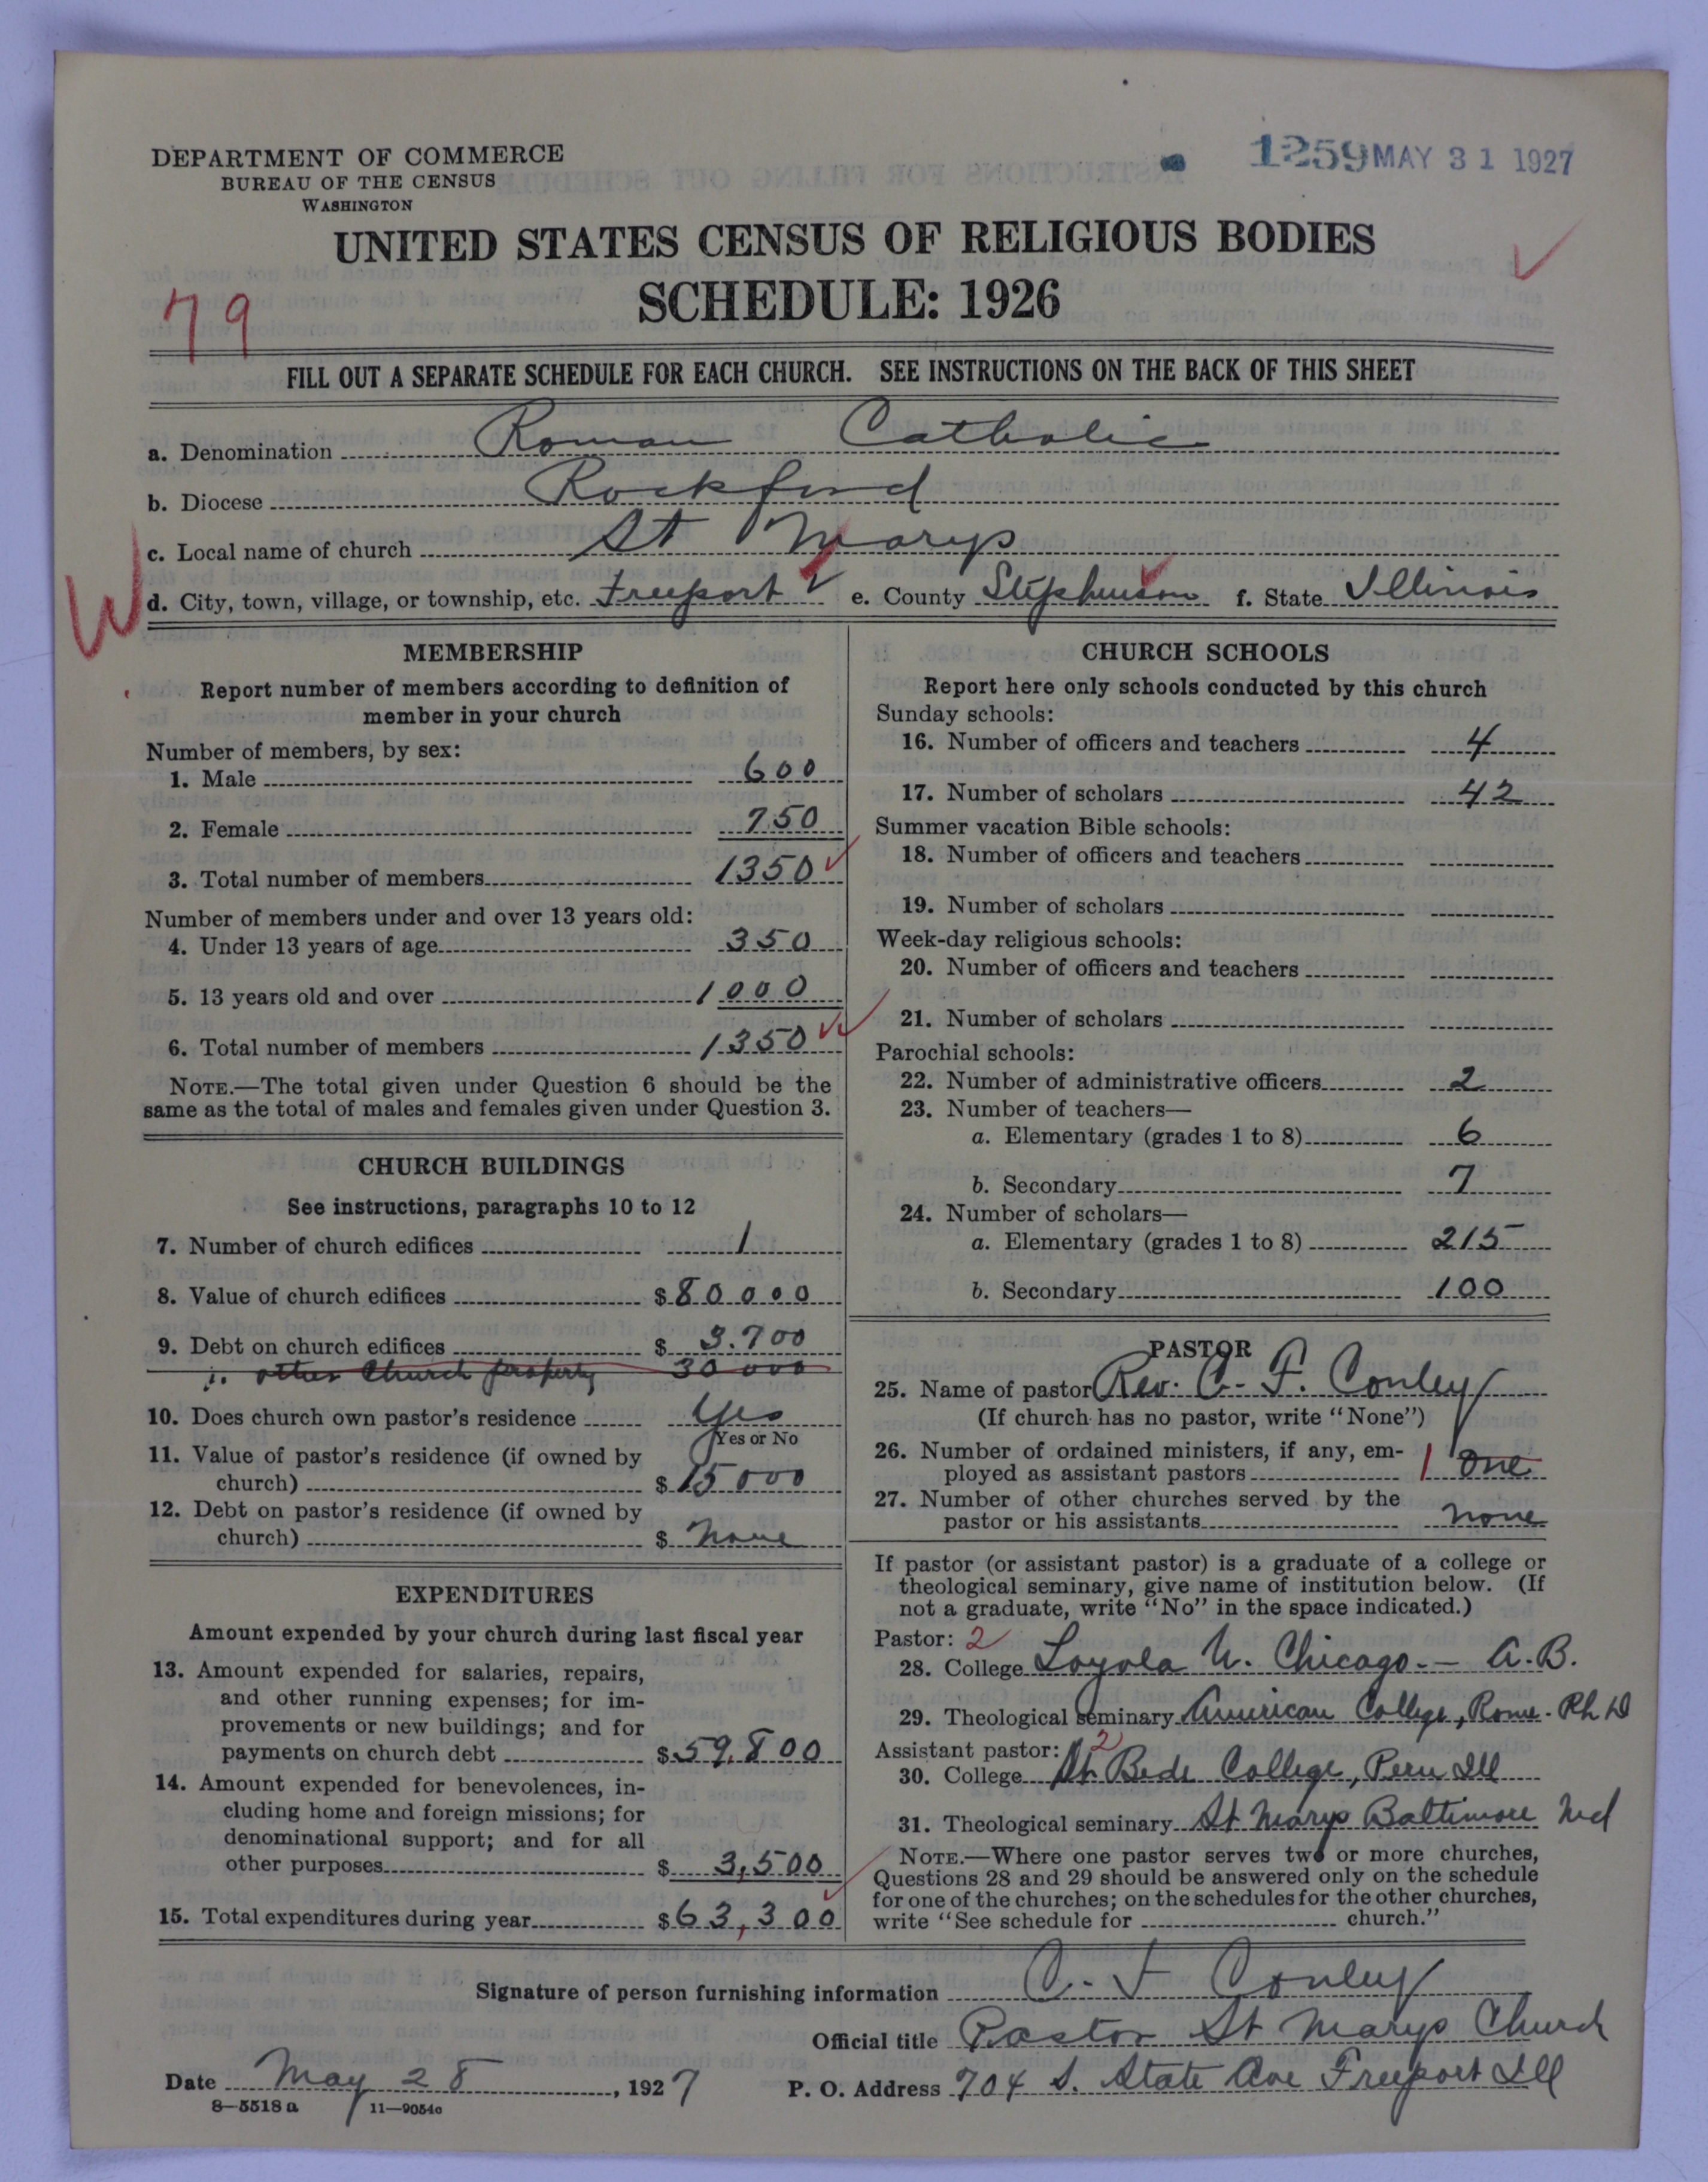 DEPARTMENT OF COMMERCE
BUREAU OF THE CENSUS
WASHINGTON
1259 MAY 31 1927
UNITED STATES CENSUS OF RELIGIOUS BODIES
SCHEDULE: 1926
79
FILL OUT A SEPARATE SCHEDULE FOR EACH CHURCH. SEE INSTRUCTIONS ON THE BACK OF THIS SHEET
a. Denomination Roman Catholic
b. Diocese Rockford
c. Local name of church St Marys
W
d. City, town, village, or township, etc. Freeport e. County Stephenson f. State Illinois
MEMBERSHIP
Report number of members according to definition of
member in your church
Number of members, by sex:
1. Male 600
2. Female 750
3. Total number of members 1350
Number of members under and over 13 years old:
4. Under 13 years of age 350
5. 13 years old and over 1000
6. Total number of members 1350
NOTE.—The total given under Question 6 should be the
same as the total of males and females given under Question 3.
CHURCH BUILDINGS
See instructions, paragraphs 10 to 12
7. Number of church edifices 1
8. Value of church edifices $80000
9. Debt on church edifices $3.700
other Church property 30 000
10. Does church own pastor's residence Yes
Yes or No
11. Value of pastor's residence (if owned by
church) $15000
12. Debt on pastor's residence (if owned by
church) $ None
EXPENDITURES
Amount expended by your church during last fiscal year
13. Amount expended for salaries, repairs,
and other running expenses; for im-
provements or new buildings; and for
payments on church debt $59,800
14. Amount expended for benevolences, in-
cluding home and foreign missions; for
denominational support; and for all
other purposes $3,500
15. Total expenditures during year $63,300
CHURCH SCHOOLS
Report here only schools conducted by this church
Sunday schools:
16. Number of officers and teachers 4
17. Number of scholars 42
Summer vacation Bible schools:
18. Number of officers and teachers
19. Number of scholars
Week-day religious schools:
20. Number of officers and teachers
21. Number of scholars
Parochial schools:
22. Number of administrative officers 2
23. Number of teachers—
a. Elementary (grades 1 to 8) 6
b. Secondary 7
24. Number of scholars—
a. Elementary (grades 1 to 8) 215
b. Secondary 100
PASTOR
25. Name of pastor Rev. C. F. Conley
(If church has no pastor, write "None")
26. Number of ordained ministers, if any, em-
ployed as assistant pastors 1 One
27. Number of other churches served by the
pastor or his assistants None
If pastor (or assistant pastor) is a graduate of a college or
theological seminary, give name of institution below. (If
not a graduate, write "No" in the space indicated.)
Pastor: 2
28. College Loyola U. Chicago — A.B.
29. Theological seminary American College, Rome - Ph D
Assistant pastor: 2
30. College St Bede College, Peru Ill
31. Theological seminary St Marys Baltimore Md
NOTE.—Where one pastor serves two or more churches,
Questions 28 and 29 should be answered only on the schedule
for one of the churches; on the schedules for the other churches,
write "See schedule for church."
Signature of person furnishing information C. F Conley
Official title Pastor St Marys Church
Date May 28, 1927 P. O. Address 704 S. State Ave Freeport Ill
8—5518a 11—9054c